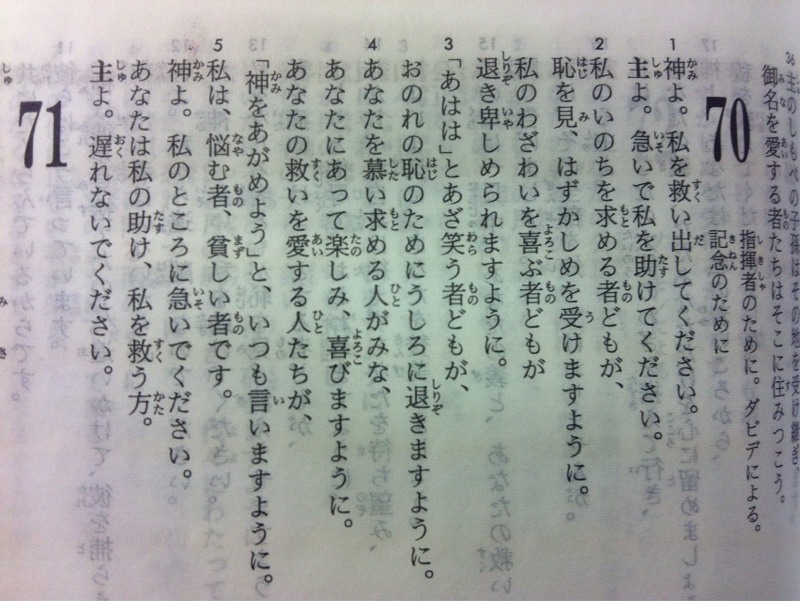 36 主のしもべの子孫はその地を受け継ぎ、
御名を愛する者たちはそこに住みつこう。
70
指揮者のために。ダビデによる。
記念のために
1 神よ。私を救い出してください。
主よ。急いで私を助けてください。
2 私のいのちを求める者どもが、
恥を見、はずかしめを受けますように。
私のわざわいを喜ぶ者どもが
退き卑しめられますように。
3 「あはは」とあざ笑う者どもが、
おのれの恥のためにうしろに退きますように。
4 あなたを慕い求める人がみな、
あなたにあって楽しみ、喜びますように。
あなたの救いを愛する人たちが、
「神をあがめよう」と、いつも言いますように。
5 私は、悩む者、貧しい者です。
神よ。私のところに急いでください。
あなたは私の助け、私を救う方。
主よ。遅れないでください。
71